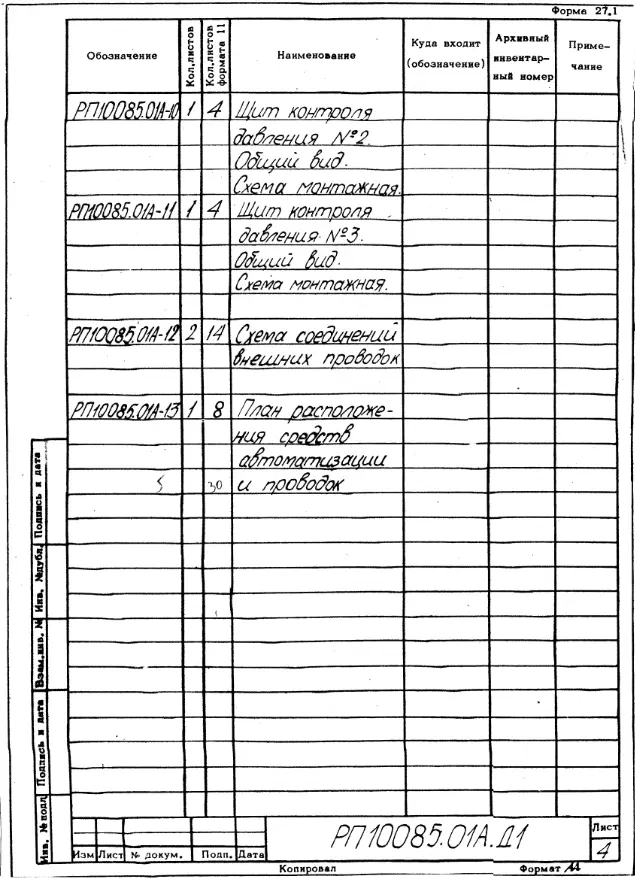 Форма 27.1
Обозначение
Кол.листов
Кол.листов формата 11
Наименование
Куда входит (обозначение)
Архивный инвентар-ный номер
Приме-чание
РП10085.01А-10 1 4 Щит контроля
давления №2.
Общий вид.
Схема монтажная.
РП10085.01А-11 1 4 Щит контроля
давления №3.
Общий вид.
Схема монтажная.
РП10085.01А-12 2 14 Схема соединений
внешних проводок
РП10085.01А-13 1 8 План расположе-
ния средств
автоматизации
5 30 и проводок
Инв. № подл. Подпись и дата Взам.инв. № Инв. №дубл. Подпись и дата
РП10085.01А.Д1
Лист
4
Изм Лист № докум. Подп. Дата
Копировал Формат 11